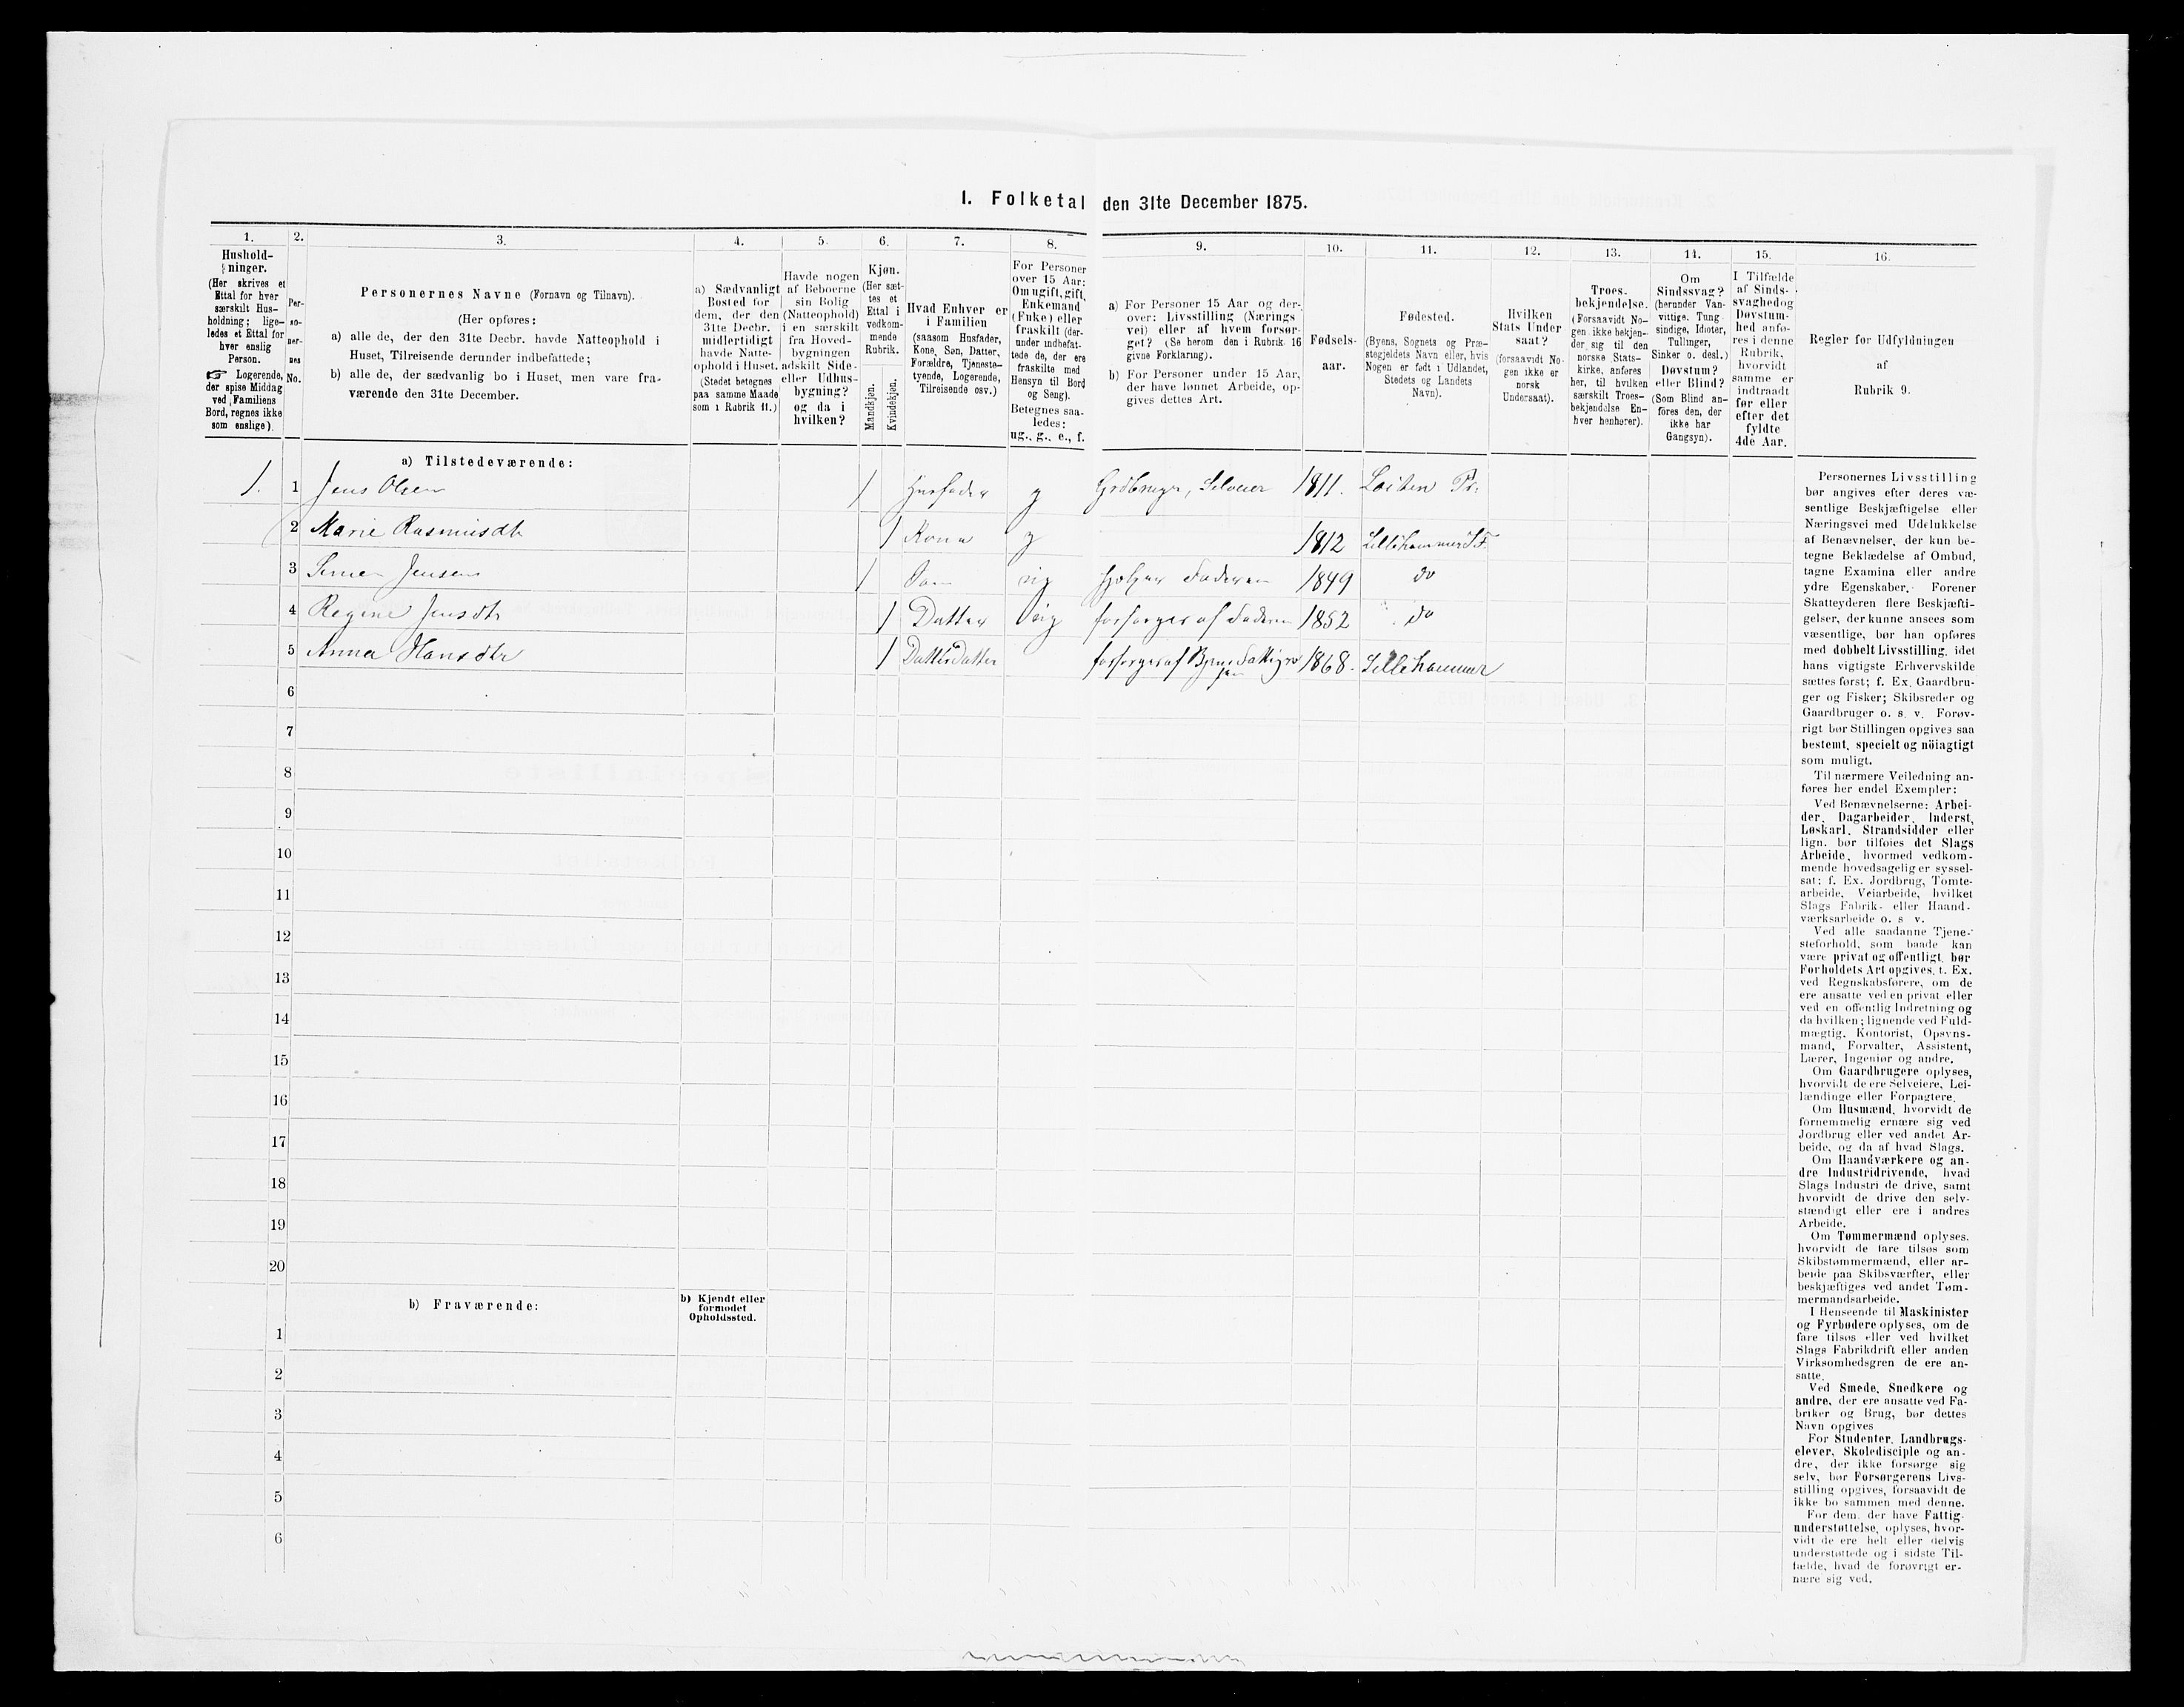 I. Folketal den 31te December 1875.
1.
Hushold-
ninger.
(Her skrives et
Ettal for hver
særskilt Hus-
holdning; lige-
ledes et Ettal for
hver enslig
Person.
☞ Logerende,
der spise Middag
ved Familiens
Bord, regnes ikke
som enslige).
2.
Per-
so-
ner-
nes
No.
3.
Personernes Navne (Fornavn og Tilnavn).
(Her opføres:
a) alle de, der den 31te Decbr. havde Natteophold i
Huset, Tilreisende derunder indbefattede;
b) alle de, der sædvanlig bo i Huset, men vare fra-
værende den 31te December.
4.
a) Sædvanligt
Bosted for
dem, der den
31te Decbr.
midlertidigt
havde Natte-
ophold i Huset.
(Stedet betegnes
paa samme Maade
som i Rubrik 11.)
5.
Havde nogen
af Beboerne
sin Bolig
(Natteophold)
i en særskilt
fra Hoved-
bygningen
adskilt Side-
eller Udhus-
bygning?
og da i
hvilken?
6.
Kjøn.
(Her sæt-
tes et
Ettal i
vedkom-
mende
Rubrik.
Mandkjøn.
Kvindekjøn.
7.
Hvad Enhver er
i Familien
(saasom Husfader,
Kone, Søn, Datter,
Forældre, Tjeneste-
tyende, Logerende,
Tilreisende osv.)
8.
For Personer
over 15 Aar:
Om ugift, gift,
Enkemand
(Enke) eller
fraskilt (der-
under indbefat-
tede de, der ere
fraskilte med
Hensyn til Bord
og Seng).
Betegnes saa-
ledes:
ug., g., e., f.
9.
a) For Personer 15 Aar og der-
over: Livsstilling (Nærings
vei) eller af hvem forsør-
get? (Se herom den i Rubrik 16
givne Forklaring).
b) For Personer under 15 Aar,
der have lønnet Arbeide, op-
gives dettes Art.
10.
Fødsels-
aar.
11.
Fødested.
(Byens, Sognets og Præ-
stegjeldets Navn eller, hvis
Nogen er født i Udlandet,
Stedets og Landets
Navn).
12.
Hvilken
Stats Under
saat?
(forsaavidt No-
gen ikke er
norsk
Undersaat).
13.
Troes-
bekjendelse.
(Forsaavidt No-
gen ikke bekjen-
der sig til den
norske Stats-
kirke, anføres
her, til hvilken
særskilt Troes-
bekjendelse En-
hver henhører).
14.
Om
Sindssvag?
(herunder Van-
vittige, Tung-
sindige, Idioter,
Tullinger,
Sinker o. desl.)
Døvstum?
eller Blind?
(Som Blind an-
føres den, der
ikke har
Gangsyn).
15.
I Tilfælde
af Sinds-
svaghedog
Døvstum-
hed anfø-
res i denne
Rubrik,
hvorvidt
samme er
indtraadt
før eller
efter det
fyldte
4de Aar.
16.
Regler for Udfyldningen
af
Rubrik 9.
a) Tilstedeværende:
1. 1 Jens Olsen 1 Husfader g Grdbruger, Selveier 1811. Løiten Pr.
2 Marie Rasmusdtr 1 Kone g 1812 Lillehammer
3 Simen Jensen 1 Søn ug hjelper Faderen 1849 do
4 Regine Jensdtr 1 Datter ug forsørges af Faderen 1852 do
5 Anna Hansdtr 1 DattersDatter forsørges af 1868. Lillehammer
6
7
8
9
10
11
12
13
14
15
16
17
18
19
20
b) Fraværende:
b) Kjendt eller
formodet
Opholdssted.
1
2
3
4
5
6
Personernes Livsstilling
bør angives efter deres væ-
sentlige Beskjæftigelse eller
Næringsvei med Udelukkelse
af Benævnelser, der kun be-
tegne Beklædelse af Ombud,
tagne Examina eller andre
ydre Egenskaber. Forener
Skatteyderen flere Beskjæfti-
gelser, der kunne ansees som
væsentlige, bør han opføres
med dobbelt Livsstilling, idet
hans vigtigste Erhvervskilde
sættes først; f. Ex. Gaardbru-
ger og Fisker; Skibsreder og
Gaardbruger o. s. v. Forøv-
rigt bør Stillingen opgives saa
bestemt, specielt og nöiagtigt
som muligt.
Til nærmere Veiledning an-
føres her endel Exempler:
Ved Benævnelserne: Arbei-
der, Dagarbeider, Inderst,
Løskarl, Strandsidder eller
lign. bør tilføies det Slags
Arbeide, hvormed vedkom-
mende hovedsagelig er syssel-
sat; f. Ex. Jordbrug, Tomte-
arbeide, Veiarbeide, hvilket
Slags Fabrik- eller Haand-
værksarbeide o. s v.
Ved alle saadanne Tjene-
steforhold, som baade kan
være privat og offentligt, bør
Forholdets Art opgives, t. Ex.
ved Regnskabsførere, om de
ere ansatte ved en privat eller
ved en offentlig Indretning og
da hvilken; lignende ved Fuld-
mægtig, Kontorist, Opsyns-
mand, Forvalter, Assistent,
Lærer, Ingeniør og andre.
Om Gaardbrugere oplyses,
hvorvidt de ere Selveiere, Lei-
lændinge eller Forpagtere.
Om Husmænd, hvorvidt de
fornemmelig ernære sig ved
Jordbrug eller ved andet Ar-
beide, og da af hvad Slags.
Om Haandværkere og an-
dre Industridrivende, hvad
Slags Industri de drive, samt
hvorvidt de drive den selv-
stændigt eller ere i andres
Arbeide.
Om Tømmermænd oplyses,
hvorvidt de fare tilsøs som
Skibstømmermænd, eller ar-
beide paa Skibsværfter, eller
beskjæftiges ved andet Tøm-
mermandsarbeide.
I Henseende til Maskinister
og Fyrbødere oplyses, om de
fare tilsøs eller ved hvilket
Slags Fabrikdrift eller anden
Virksomhedsgren de ere an-
satte.
Ved Smede, Snedkere og
andre, der ere ansatte ved Fa-
briker og Brug, bør dettes
Navn opgives
For Studenter, Landbrugs-
elever, Skoledisciple og an-
dre, der ikke forsørge sig
selv, bør Forsørgerens Livs-
stilling opgives, forsaavidt de
ikke bo sammen med denne.
For dem, der have Fattig-
understøttelse, oplyses, hvor-
vidt de ere helt eller delvis
understøttede og i sidste Til-
fælde, hvad de forøvrigt er-
nære sig ved.